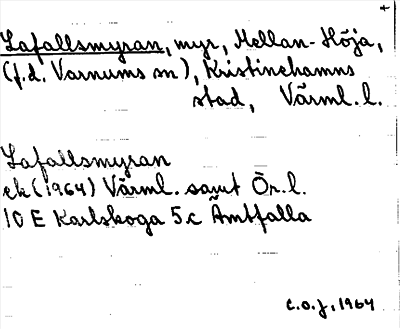 Lafallsmyran, myr, Mellan-Höja,
(f.d. Varnums sn), Kristinehamns
stad, Värml. l.
Lafallsmyran
ek (1964) Värml. samt Ör. l.
10 E Karlskoga 5c Ämtfalla
C.O.J., 1964